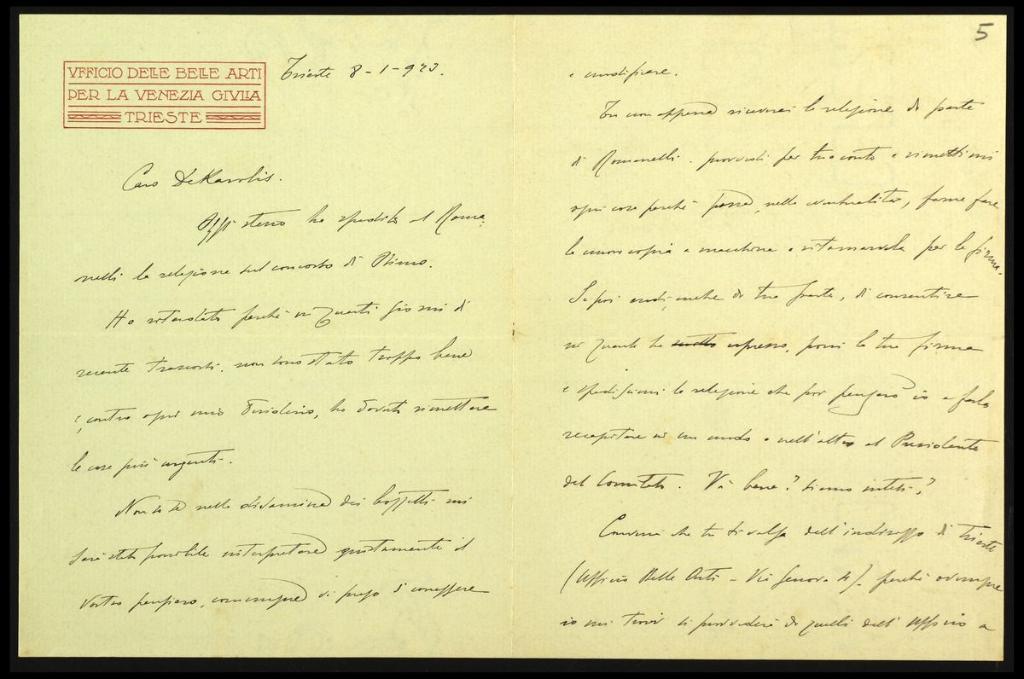 VFFICIO DELLE BELLE ARTI
PER LA VENEZIA GIVLIA
TRIESTE
Trieste 8-1-923.
5
Caro DeKarolis.
Oggi stesso ho spedito al Roma-
nelli la relazione sul concorso di Rimo.
Ho ritardato perchè in questi giorni di
recente trascorsi, non sono stato troppo bene
e, contro ogni mio desiderio, ho dovuto rimettere
le cose più urgenti.
Non so se nella disamina dei bozzetti mi
sarà stato possibile interpretare giustamente il
vostro pensiero, comunque vi prego di correggere
e modificare.
Tu non appena riceverai la relazione da parte
di Romanelli, provvedi per tuo conto e rimettimi
ogni cosa perchè possa, nelle eventualità, farne fare
la nuova copia a macchina e ritornarvela per la firma.
Se poi credi, anche da tua parte, di consentire
in quanto ho espresso, poni la tua firma
e spediscimi la relazione che poi penserò io a farla
recapitare in un modo o nell'altro al Presidente
del Comitato. Và bene? Siamo intesi?
Conviene che tu ti valga dell'indirizzo di Trieste
(Ufficio Belle Arti - Via Genova 4). perchè ovunque
io mi trovi si provvederà da quelli dell'Ufficio a